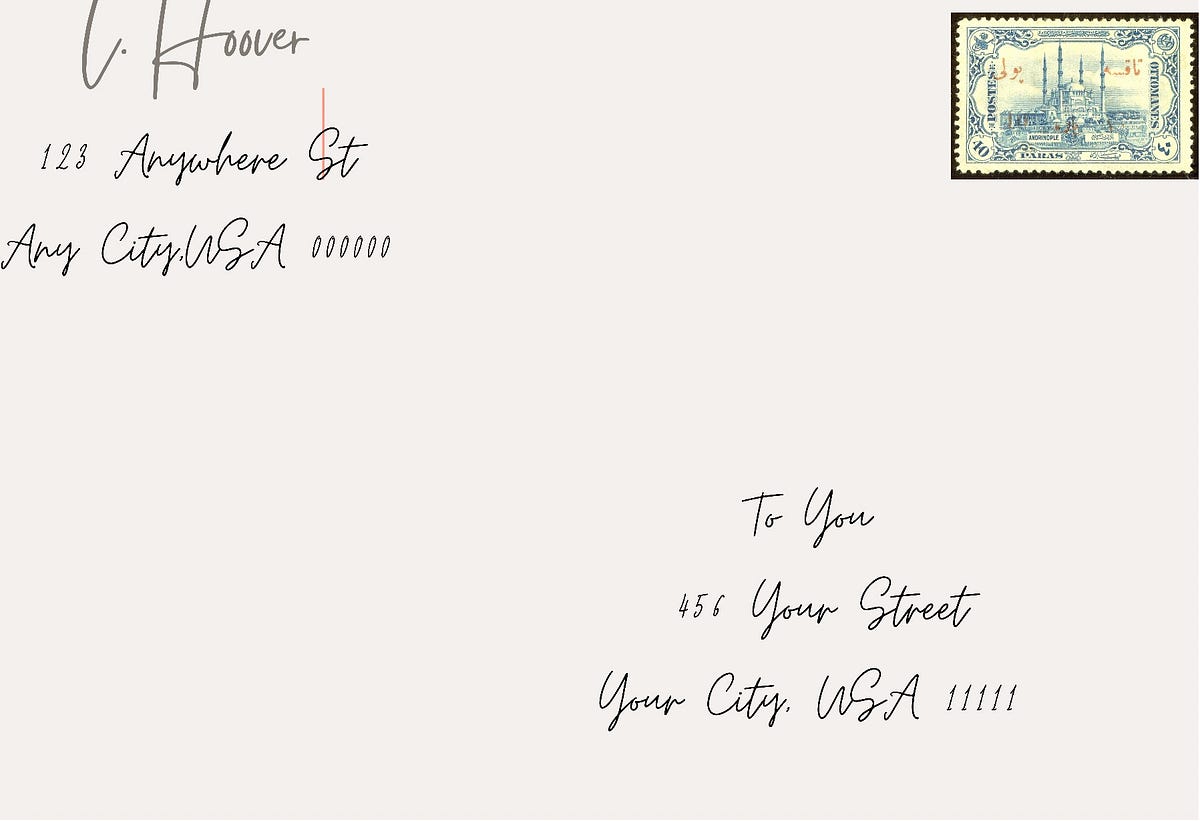 C. Hoover
123 Anywhere St
Any City,USA 000000
POSTES OTTOMANES
تاقسه پولی
ANDRINOPLE
10 PARAS
To You
456 Your Street
Your City, USA 11111